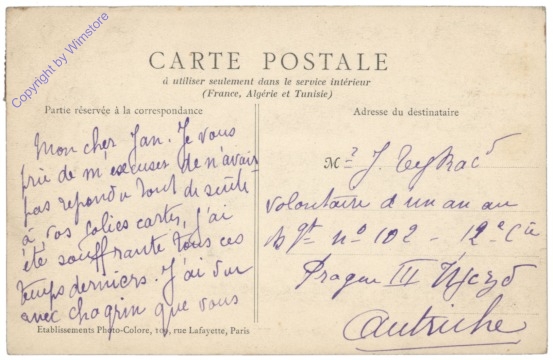 Copyright by Wimstore
CARTE POSTALE
à utiliser seulement dans le service intérieur
(France, Algérie et Tunisie)
Partie réservée à la correspondance
Mon cher Jan. Je vous
prie de m'excuser de n'avoir
pas repondu tout de suite
à vos jolies cartes, j'ai
été souffrante tous ces
temps derniers. J'ai vu
avec chagrin que vous
Adresse du destinataire
Mr J.
volontaire d'un an au
Bgt no 102 - 12e Cie
Prague III
Autriche
Etablissements Photo-Colore, 109, rue Lafayette, Paris